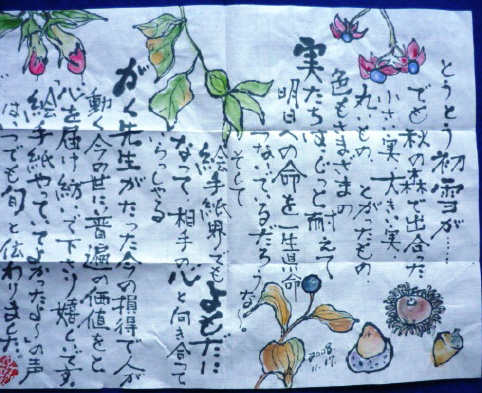 とうとう初雪が……
でも秋の森で出合った
小さい実、大きい実、
丸いもの、とがったもの、
色もさまざまの
実たちはじっと耐えて
明日への命を一生県命
つないでいるだろうな〜。
そして
絵手紙界でも
なって、相手の心と向き合って
いらっしゃる
がく先生がたった今の損得で人が
動く今の世に、普遍の価値をと
心を届け紡いで下さり嬉しいです。
絵手紙やっててよかったよ〜いの声
はいつでも旬と伝わりました。
2008.
11.19.